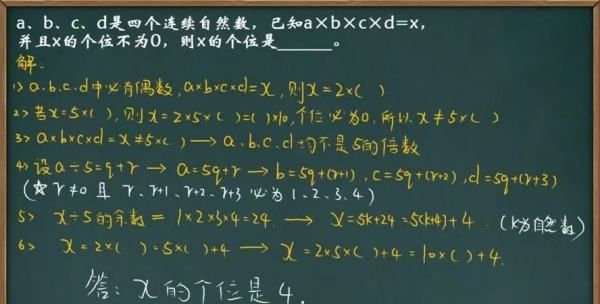 a、b、c、d是四个连续自然数，已知a×b×c×d=x，
并且x的个位不为0，则x的个位是______。
解：
1> a.b.c.d中必有偶数，a×b×c×d=x，则x=2×( )
2> 若x=5×( )，则x=2×5×( )=( )×10，个位必为0，所以x≠5×( )
3> a×b×c×d=x≠5×( ) → a、b、c、d均不是5的倍数
4> 设a÷5=q+r → a=5q+r → b=5q+(r+1)，c=5q+(r+2)，d=5q+(r+3)
(☆r≠0 且 r、r+1、r+2、r+3必为1、2、3、4)
5> x÷5的余数=1×2×3×4=24 → x=5k+24=5(k+4)+4．(k为自然数)
6> x=2×( )=5×( )+4 → x=2×5×( )+4=10×( )+4．
答：x的个位是4．